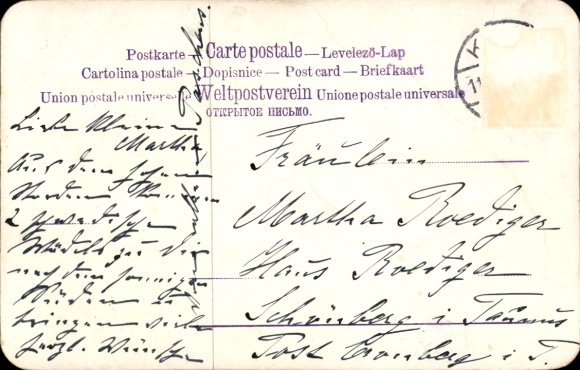 Postkarte — Carte postale — Levelező-Lap
Cartolina postale — Dopisnice — Post card — Briefkaart
Union postale universelle Weltpostverein Unione postale universale
ОТКРЫТОЕ ПИСЬМО.
Liebe kleine
Martha
Aus dem hohen
Norden kommen
2 schwedische
Mädels zu Dir
nach dem sonnigen
Süden u
bringen viele
herzl. Wünsche
Fräulein
Martha Roediger
Haus Roediger
Schönberg i Taunus
Post Cronberg i. T.